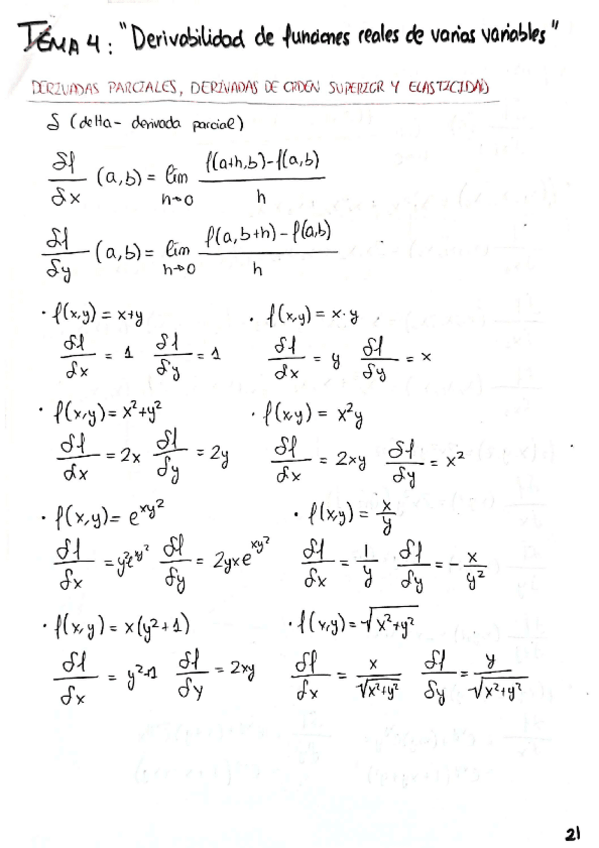 TEMA 4: "Derivabilidad de funciones reales de varias variables"
DERIVADAS PARCIALES, DERIVADAS DE ORDEN SUPERIOR Y ELASTICIDAD
δ (delta - derivada parcial)
δf/δx (a,b) = lim h→0 f(a+h,b)-f(a,b)/h
δf/δy (a,b) = lim h→0 f(a,b+h)-f(a,b)/h
· f(x,y) = x+y · f(x,y) = x·y
δf/δx = 1 δf/δy = 1 δf/δx = y δf/δy = x
· f(x,y) = x²+y² · f(x,y) = x²y
δf/δx = 2x δf/δy = 2y δf/δx = 2xy δf/δy = x²
· f(x,y) = e^xy² · f(x,y) = x/y
δf/δx = y²e^xy² δf/δy = 2yxe^xy² δf/δx = 1/y δf/δy = -x/y²
· f(x,y) = x(y²+1) · f(x,y) = √x²+y²
δf/δx = y²+1 δf/δy = 2xy δf/δx = x/√x²+y² δf/δy = y/√x²+y²
21